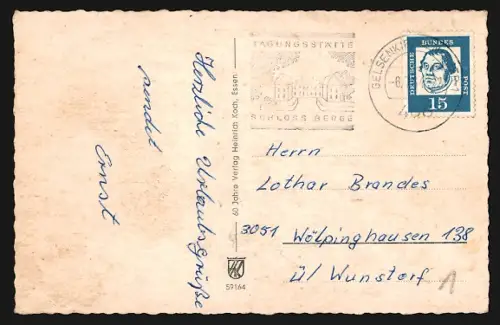 Herzliche Urlaubsgrüße
sendet
Ernst
60 Jahre Verlag Heinrich Koch, Essen
59164
TAGUNGSSTÄTTE
SCHLOSS BERGE
DEUTSCHE BUNDESPOST
15
Herrn
Lothar Brandes
3051 Wölpinghausen 138
ü/ Wunstorf
1